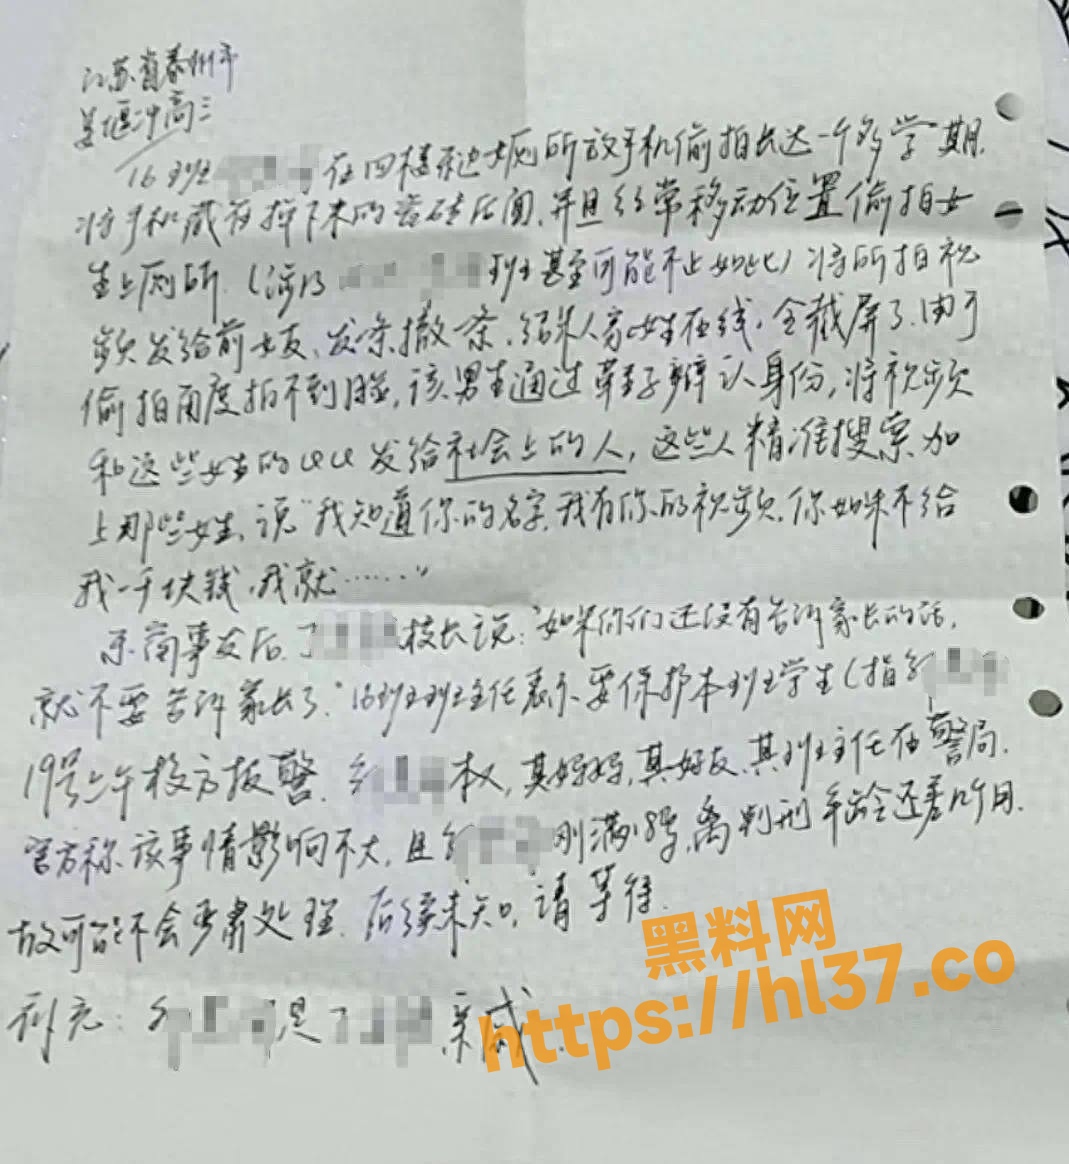 江苏省泰州市
姜堰中高三
16班 在四楼录边女厕所放手机偷拍长达一个多学期.
将手机藏在掉下来的瓷砖后面,并且经常移动位置偷拍女
生上厕所.(涉及 班甚至可能不止如此)将所拍视
频发给前女友、发一条撤一条,结果人家女生在线,全截屏了.由于
偷拍角度拍不到脸,该男生通过鞋子辨认身份,将视频
和这些女生的QQ发给社会上的人,这些人精准搜索加
上那些女生,说"我知道你的名字,我有你的视频.你如果不给
我一千块钱,我就……"
东窗事发后.丁 校长说:"如果你们还没有告诉家长的话,
就不要告诉家长了."16班班主任表示要保护本班学生(指
19号上午校方报警. 本人,其妈妈,其好友、其班主任在警局.
官方称该事情影响不大,且 刚满18岁,离判刑年龄还差几个月.
故可能不会严肃处理.后续未知,请等待.
补充: 是丁 亲戚
黑料网
https://hl37.co